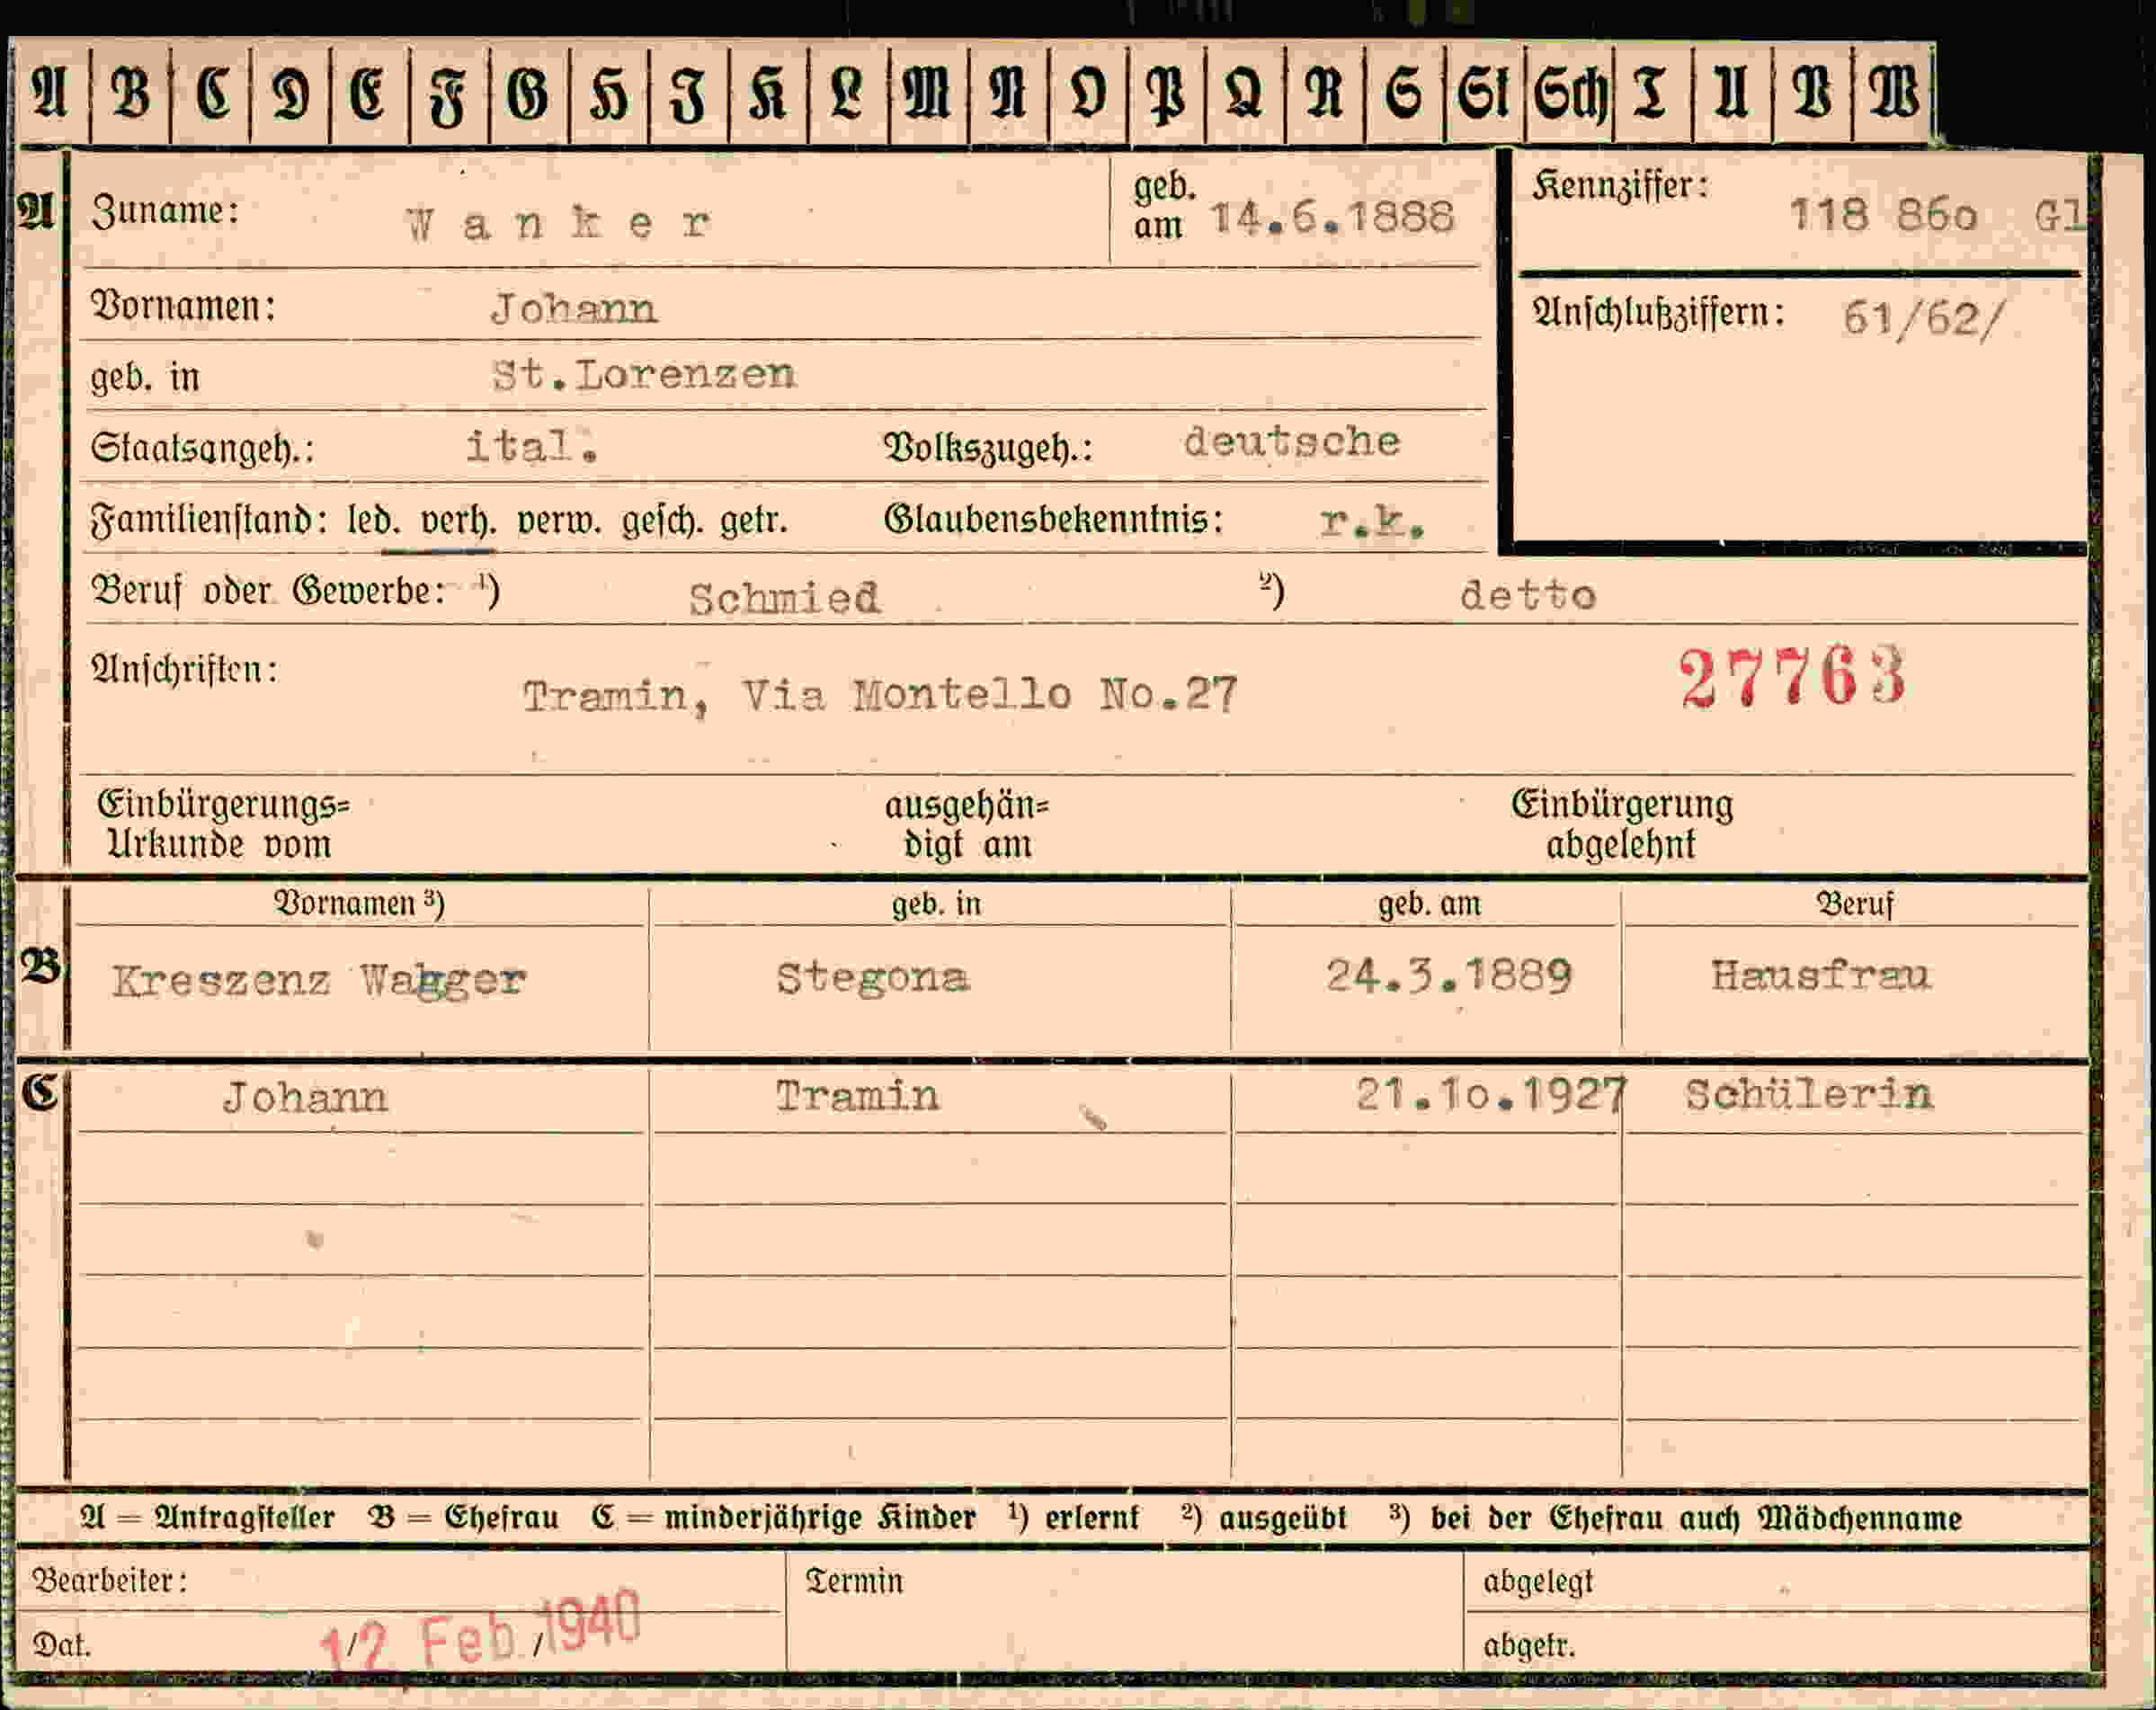 A B C D E F G H I K L M N O P Q R S St Sch T U V W
A Zuname: Wanker geb. am 14.6.1888 Kennziffer: 118 86o Gl
Vornamen: Johann Anschlußziffern: 61/62/
geb. in St.Lorenzen
Staatsangeh.: ital. Volkszugeh.: deutsche
Familienstand: led. verh. verw. gesch. getr. Glaubensbekenntnis: r.k.
Beruf oder Gewerbe: ¹) Schmied ²) detto
Anschriften: Tramin, Via Montello No.27 27763
Einbürgerungs= ausgehän= Einbürgerung
Urkunde vom digt am abgelehnt
Vornamen ³) geb. in geb. am Beruf
B Kreszenz Stegona 24.3.1889 Hausfrau
C Johann Tramin 21.1o.1927 Schülerin
A = Antragsteller B = Ehefrau C = minderjährige Kinder ¹) erlernt ²) ausgeübt ³) bei der Ehefrau auch Mädchenname
Bearbeiter: Termin abgelegt
Dat. 12 Feb. 1940 abgetr.